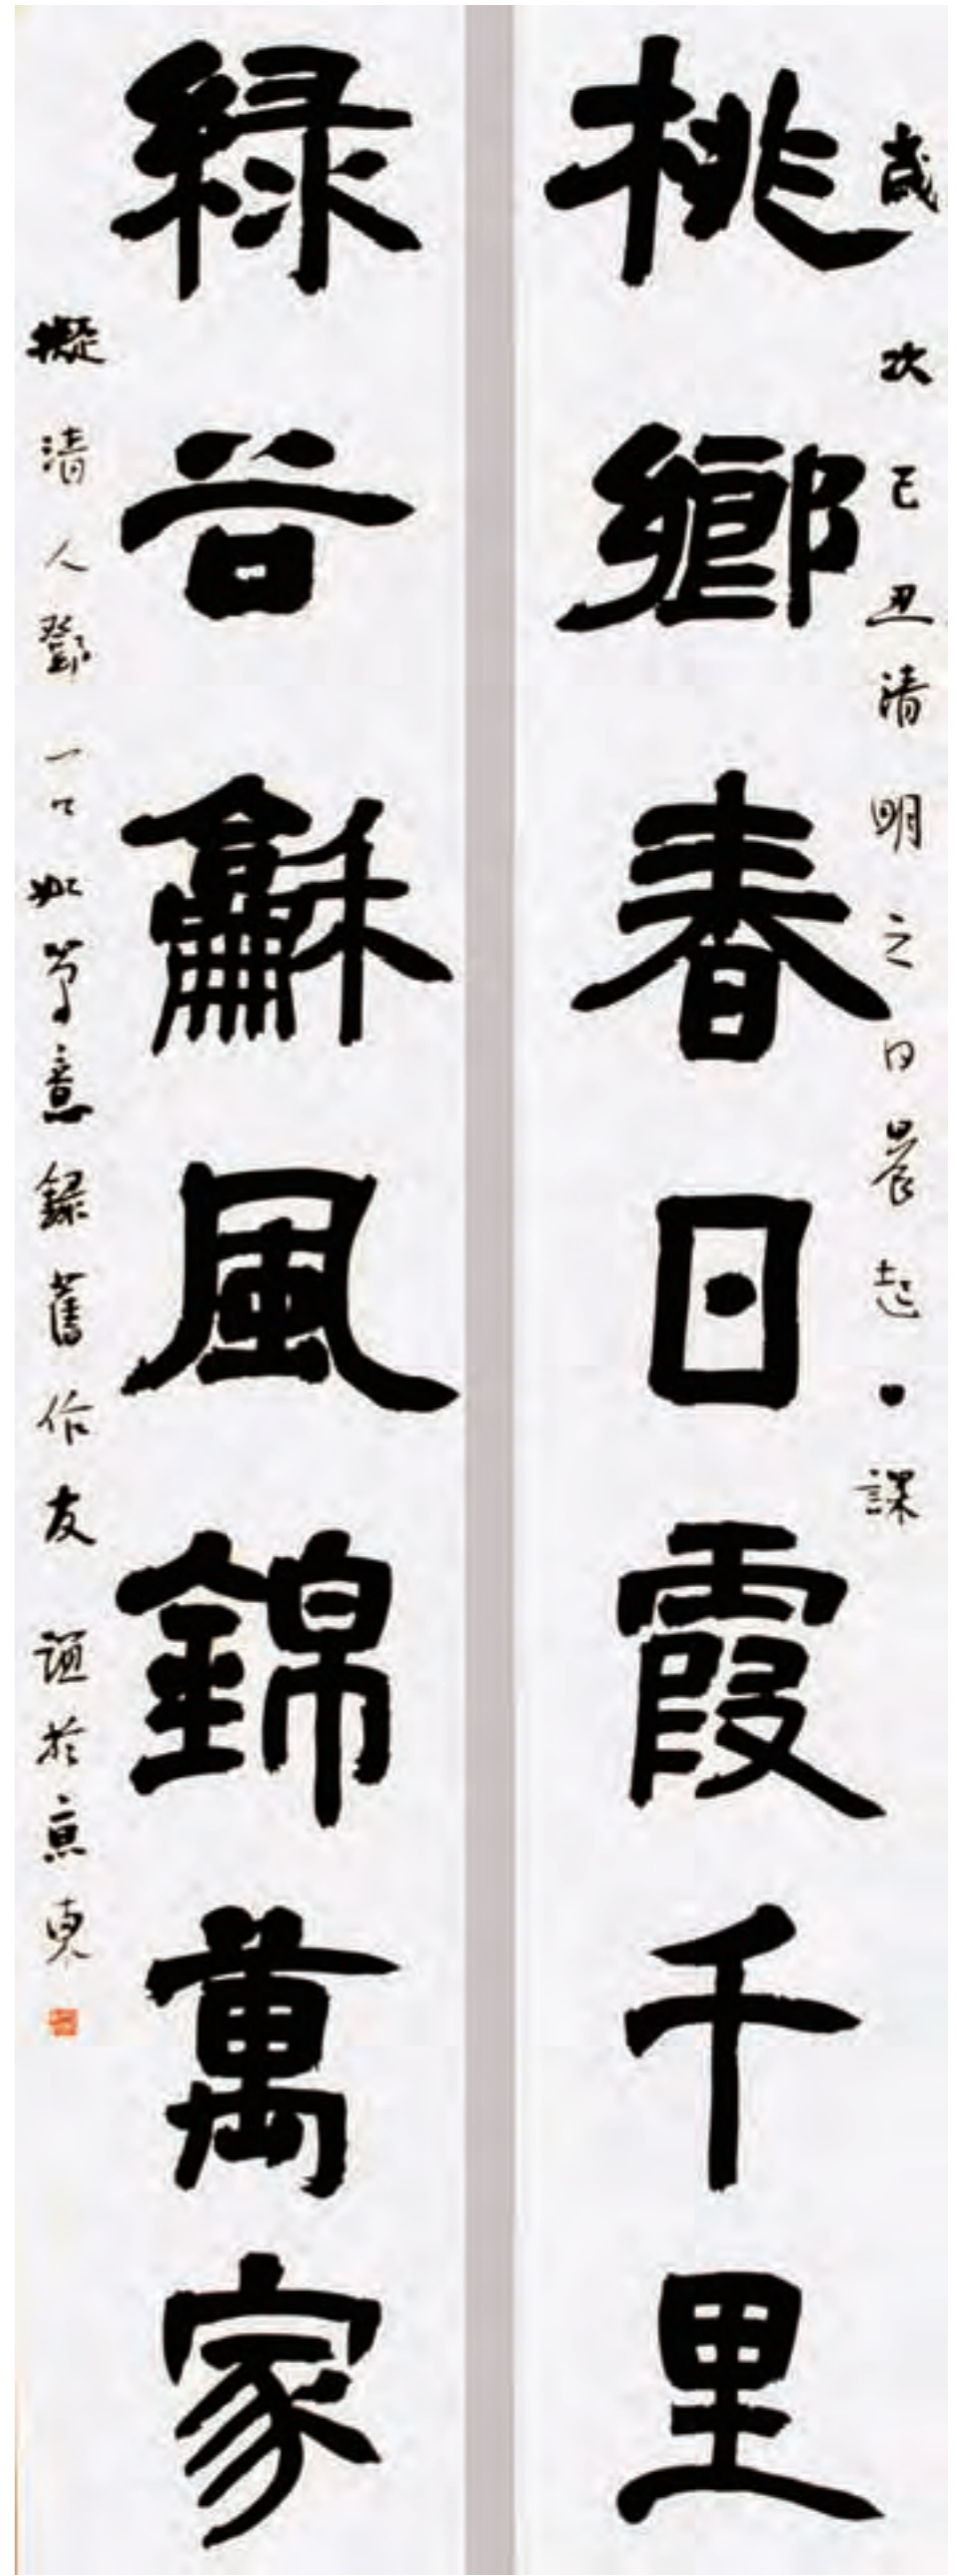 歲次己丑清明之日晨起日課
桃鄉春日霞千里
緑谷龢風錦萬家
擬清人鄧石如筆意録舊作友謙於京東